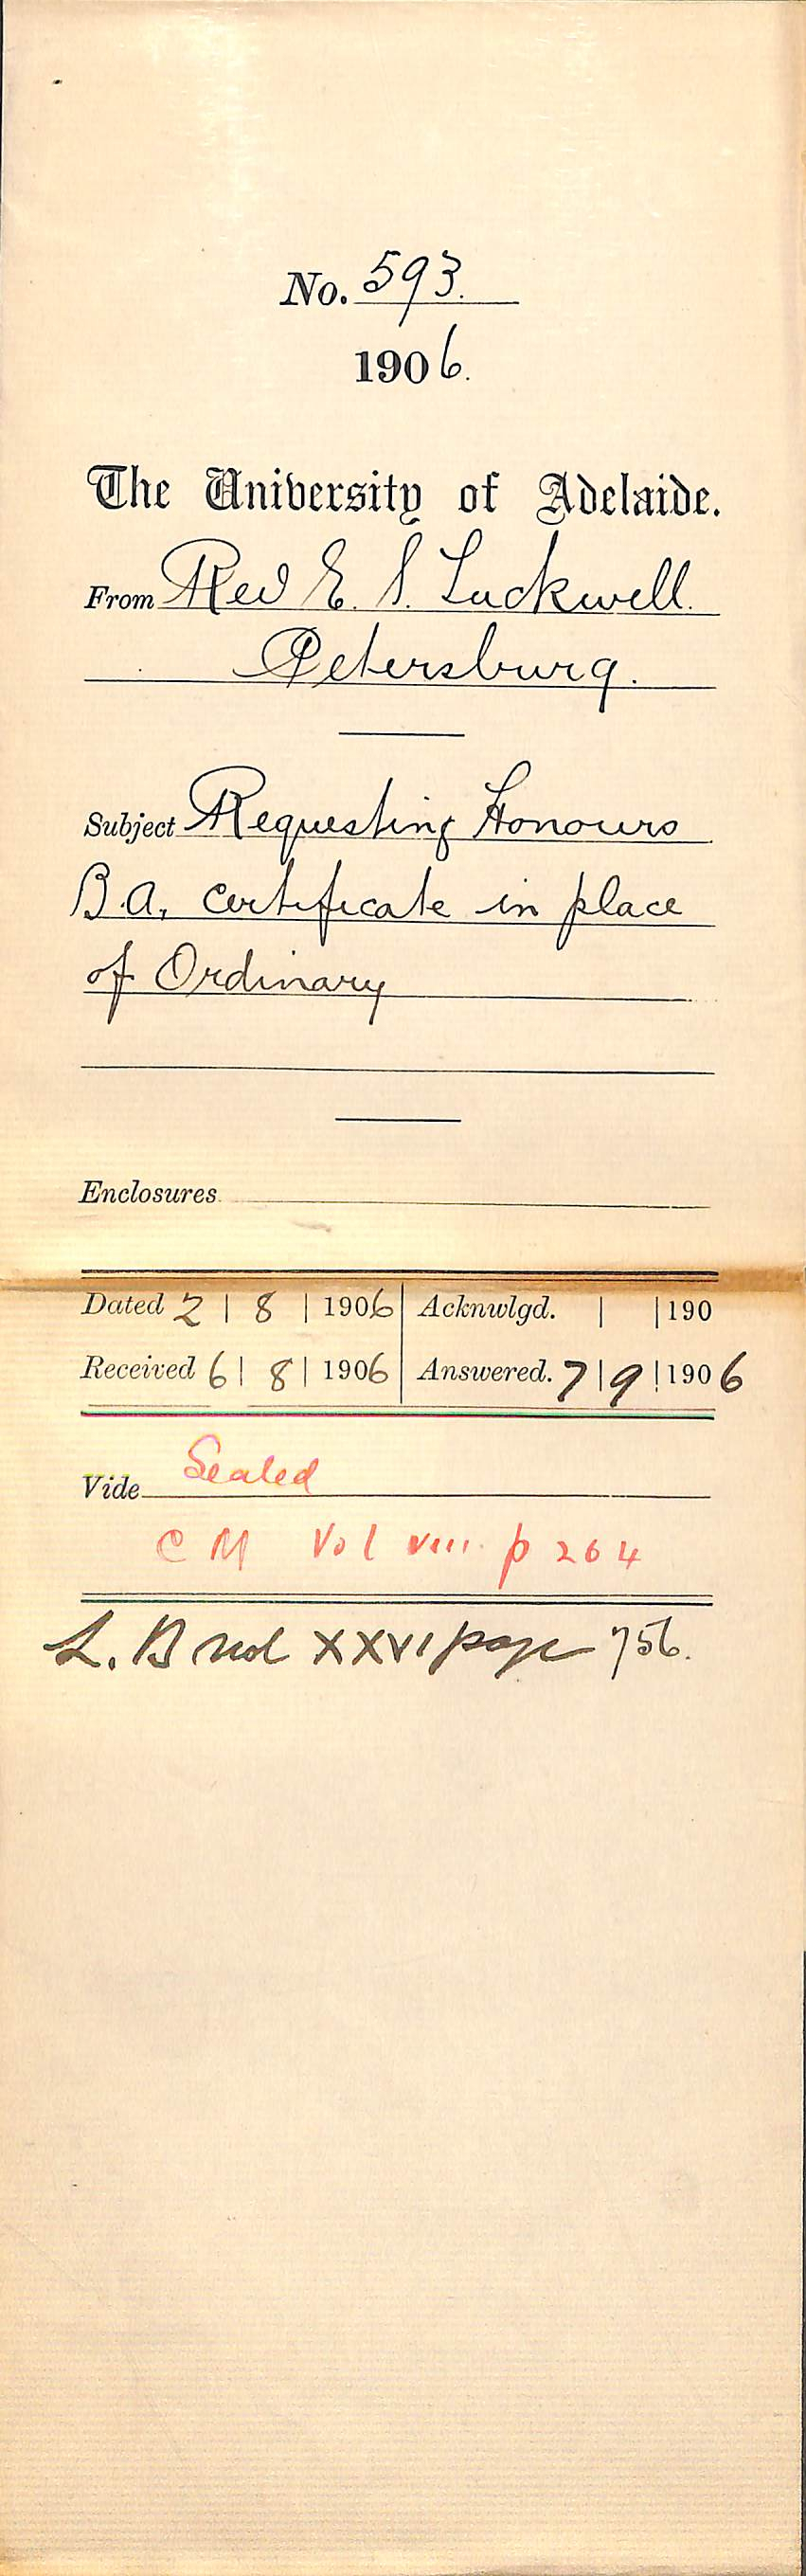 No. 593.
1906.
The University of Adelaide.
From Rev E. S. Tuckwell.
Petersburg.
Subject Requesting Honours
B.A. certificate in place
of Ordinary
Enclosures
Dated 2 | 8 | 1906 Acknwlgd. | | 190
Received 6 | 8 | 1906 Answered. 7 | 9 | 1906
Vide Sealed
C M Vol VIII. p 264
L. B vol XXVI page 756.